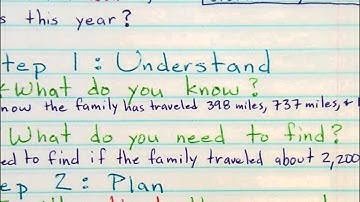 s this year?
tep 1: Understand
What do you know?
now the family has traveled 398 miles, 737 miles, &
What do you need to find?
ed to find if the family traveled about 2,200
ep 2: Plan